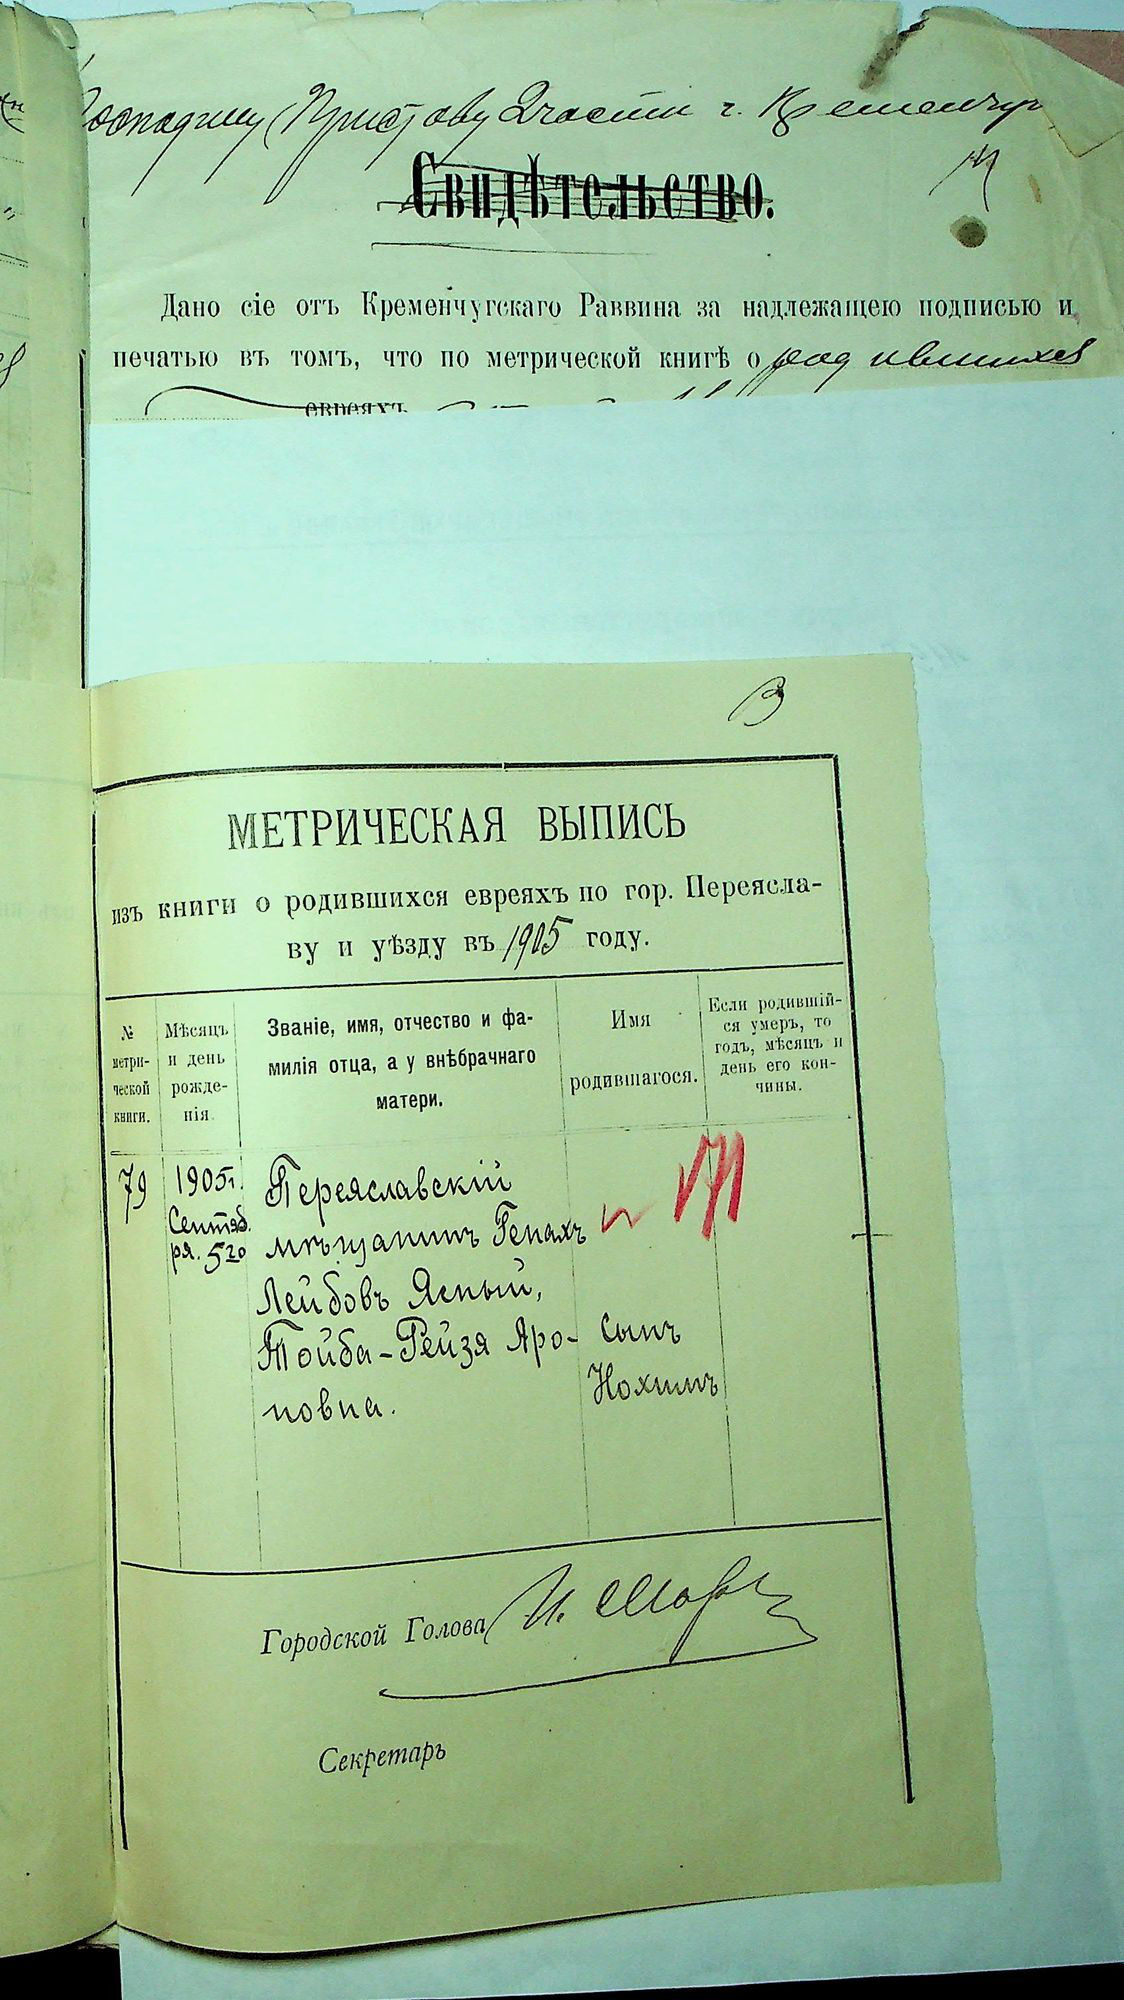 Господину Приставу 2 части г. Кременчуг
Свидѣтельство.
Дано сіе отъ Кременчугскаго Раввина за надлежащею подписью и
печатью въ томъ, что по метрической книгѣ о родившихся
евреяхъ
МЕТРИЧЕСКАЯ ВЫПИСЬ
изъ книги о родившихся евреяхъ по гор. Переясла-
ву и уѣзду въ 1905 году.
№
метри-
ческой
книги.
Мѣсяцъ
и день
рожде-
нія.
Званіе, имя, отчество и фа-
милія отца, а у внѣбрачнаго
матери.
Имя
родившагося.
Если родившій-
ся умеръ, то
годъ, мѣсяцъ и
день его кон-
чины.
79
1905г.
Сентяб.
ря. 5го
Переяславскій
мѣщанинъ Генахъ
Лейбовъ Ясный,
Тойба-Рейзя Аро-
новна.
Сынъ
Нохимъ
Городской Голова И.
Секретарь